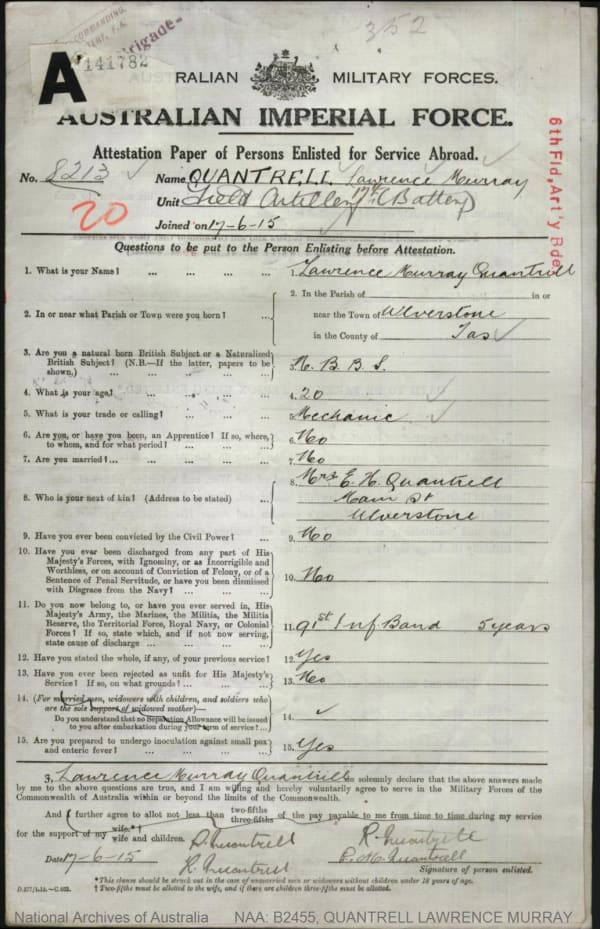 COMMANDING
Brigade.
352
A
141782
AUSTRALIAN MILITARY FORCES.
AUSTRALIAN IMPERIAL FORCE.
Attestation Paper of Persons Enlisted for Service Abroad.
6th Fld, Art'y Bde
No. 8213 Name QUANTRELL Lawrence Murray
20
Unit Field Artillery (Battery)
Joined on 17-6-15
Questions to be put to the Person Enlisting before Attestation.
1. What is your Name? ... ... ... ... 1. Lawrence Murray Quantrell
2. In or near what Parish or Town were you born? ... 2. In the Parish of in or
near the Town of Ulverstone
in the County of Tas
3. Are you a natural born British Subject or a Naturalized
British Subject? (N.B.—If the latter, papers to be
shown.) ... ... ... ... 3. N. B. B. S.
4. What is your age? ... ... ... ... 4. 20
5. What is your trade or calling? ... ... ... 5. Mechanic
6. Are you, or have you been, an Apprentice? If so, where,
to whom, and for what period? ... ... ... 6. No
7. Are you married?... ... ... ... ... 7. No
8. Who is your next of kin? (Address to be stated) ... 8. Mrs E. H. Quantrell
Main St
Ulverstone
9. Have you ever been convicted by the Civil Power? ... 9. No
10. Have you ever been discharged from any part of His
Majesty's Forces, with Ignominy, or as Incorrigible and
Worthless, or on account of Conviction of Felony, or of a
Sentence of Penal Servitude, or have you been dismissed
with Disgrace from the Navy? ... ... ... 10. No
11. Do you now belong to, or have you ever served in, His
Majesty's Army, the Marines, the Militia, the Militia
Reserve, the Territorial Force, Royal Navy, or Colonial
Forces? If so, state which, and if not now serving,
state cause of discharge ... ... ... 11. 91st Inf Band 5 years
12. Have you stated the whole, if any, of your previous service? 12. Yes
13. Have you ever been rejected as unfit for His Majesty's
Service? If so, on what grounds? ... ... ... 13. No
14. (For married men, widowers with children, and soldiers who
are the sole support of widowed mother)—
Do you understand that no Separation Allowance will be issued
to you after embarkation during your term of service?... 14.
15. Are you prepared to undergo inoculation against small pox
and enteric fever? ... ... ... ... 15. Yes
I, Lawrence Murray Quantrell do solemnly declare that the above answers made
by me to the above questions are true, and I am willing and hereby voluntarily agree to serve in the Military Forces of the
Commonwealth of Australia within or beyond the limits of the Commonwealth.
And I further agree to allot not less than two-fifths three-fifths of the pay payable to me from time to time during my service
for the support of my wife.*† wife and children.
R. Quantrell
E. H. Quantrell
Date 17-6-15 Signature of person enlisted.
*This clause should be struck out in the case of unmarried men or widowers without children under 18 years of age.
† Two-fifths must be allotted to the wife, and if there are children three-fifths must be allotted.
National Archives of Australia NAA: B2455, QUANTRELL LAWRENCE MURRAY